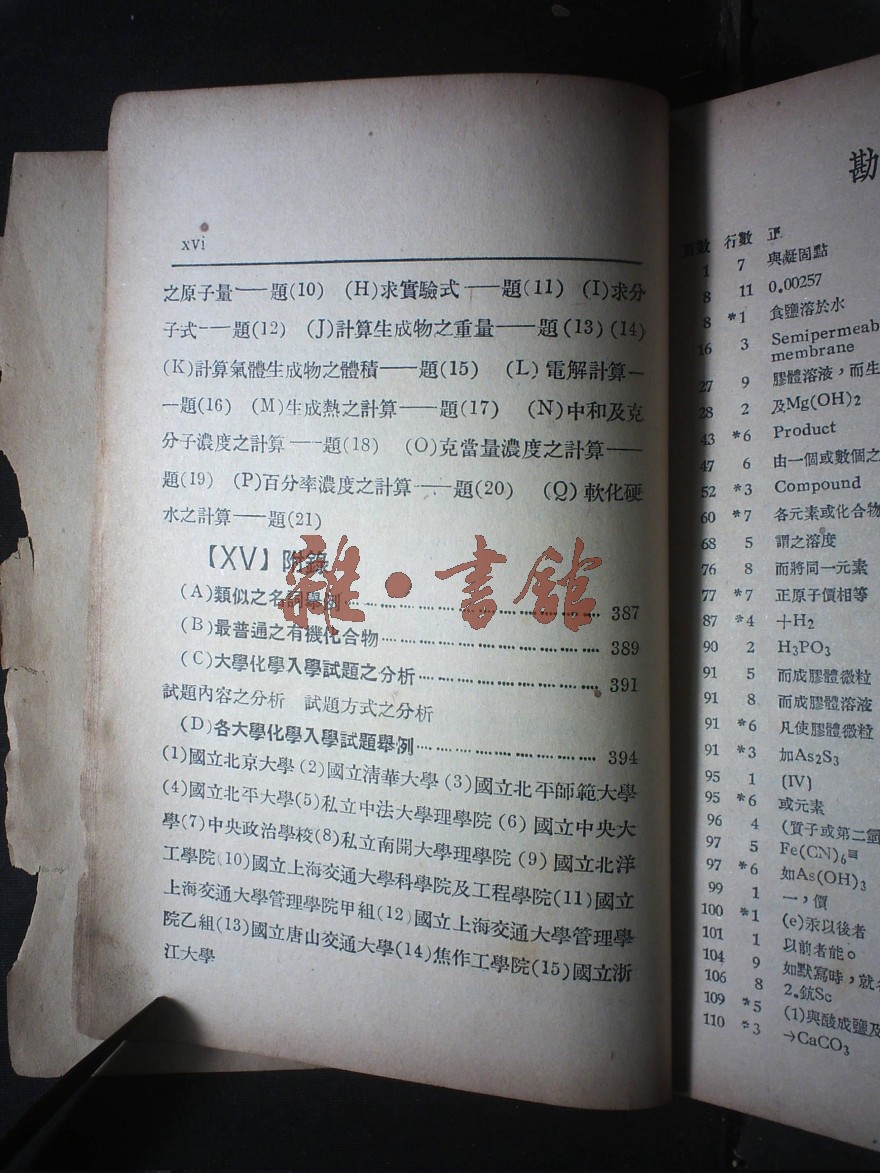 xvi
之原子量——題(10) (H)求實驗式——題(11) (I)求分
子式——題(12) (J)計算生成物之重量——題(13)(14)
(K)計算氣體生成物之體積——題(15) (L)電解計算—
—題(16) (M)生成熱之計算——題(17) (N)中和及克
分子濃度之計算——題(18) (O)克當量濃度之計算——
題(19) (P)百分率濃度之計算——題(20) (Q)軟化硬
水之計算——題(21)
【XV】附錄
(A)類似之名詞舉例 387
(B)最普通之有機化合物 389
(C)大學化學入學試題之分析 391
試題內容之分析 試題方式之分析
(D)各大學化學入學試題舉例 394
(1)國立北京大學(2)國立清華大學(3)國立北平師範大學
(4)國立北平大學(5)私立中法大學理學院(6)國立中央大
學(7)中央政治學校(8)私立南開大學理學院(9)國立北洋
工學院(10)國立上海交通大學科學院及工程學院(11)國立
上海交通大學管理學院甲組(12)國立上海交通大學管理學
院乙組(13)國立唐山交通大學(14)焦作工學院(15)國立浙
江大學
雜·書館
勘
頁數 行數 正
1 7 與凝固點
8 11 0.00257
8 *1 食鹽溶於水
16 3 Semipermeab
membrane
27 9 膠體溶液，而生
28 2 及Mg(OH)2
43 *6 Product
47 6 由一個或數個之
52 *3 Compound
60 *7 各元素或化合物
68 5 謂之溶度
76 8 而將同一元素
77 *7 正原子價相等
87 *4 +H2
90 2 H3PO3
91 5 而成膠體微粒
91 8 而成膠體溶液
91 *6 凡使膠體微粒
91 *3 加As2S3
95 1 (IV)
95 *6 或元素
96 4 (質子或第二個
97 5 Fe(CN)6≡
97 *6 如As(OH)3
99 1 一，價
100 *1 (e)汞以後者
101 1 以前者能。
104 9 如默寫時，就
106 8 2.鈧Sc
109 *5 (1)與酸成鹽及
110 *3 →CaCO3